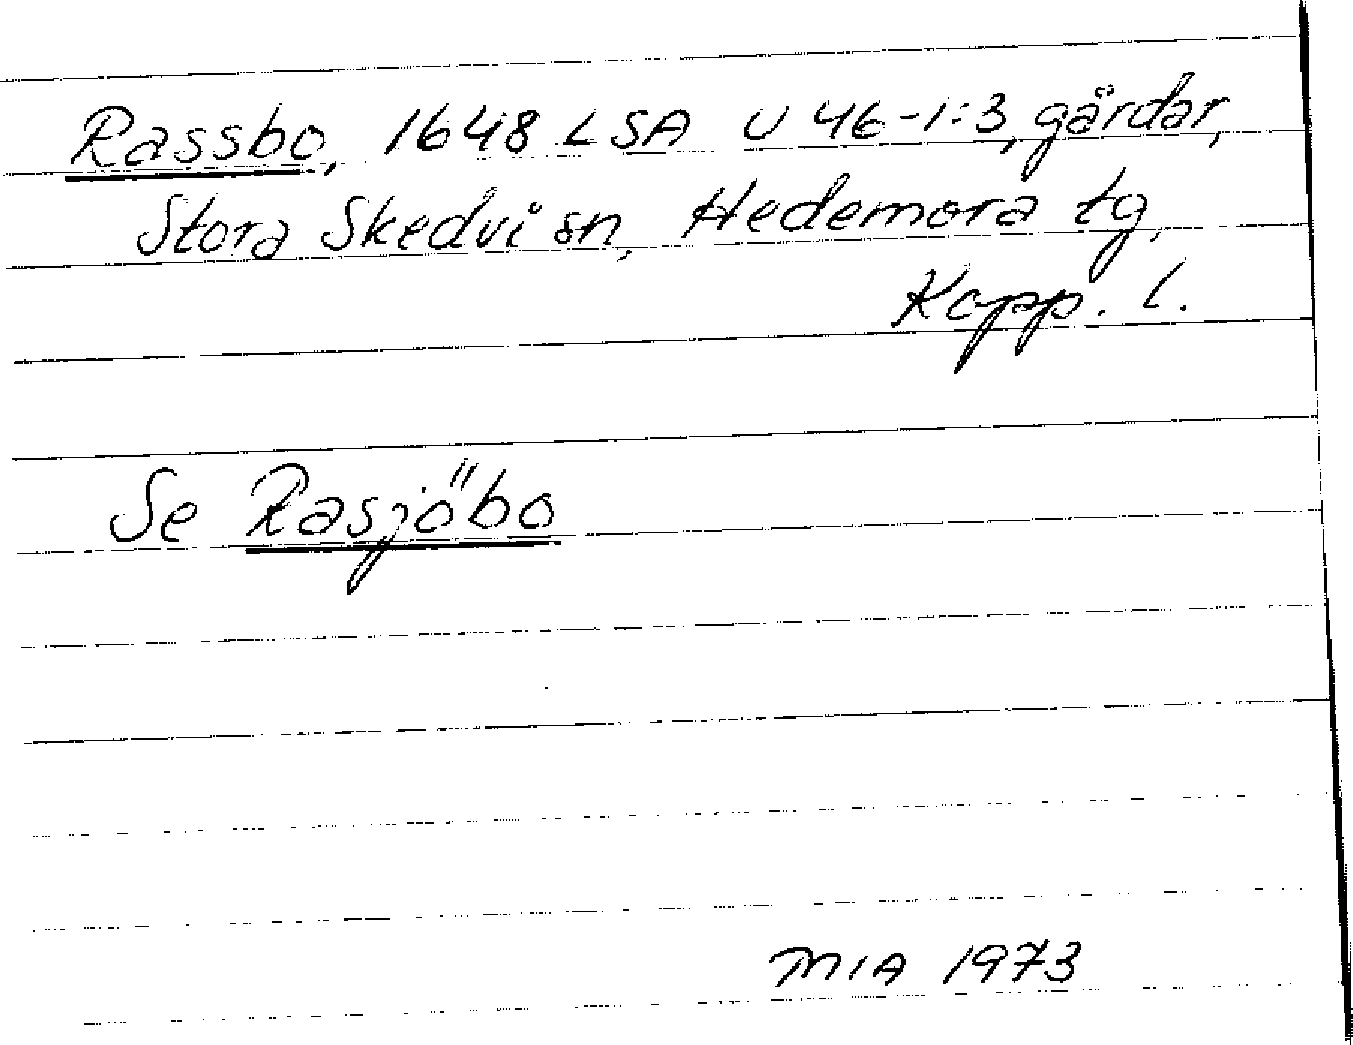 Rassbo, 1648 LSA U 46-1:3, gärdar,
Stora Skedvi sn, Hedemora tg,
Kopp. l.
Se Rasjöbo
MIA 1973